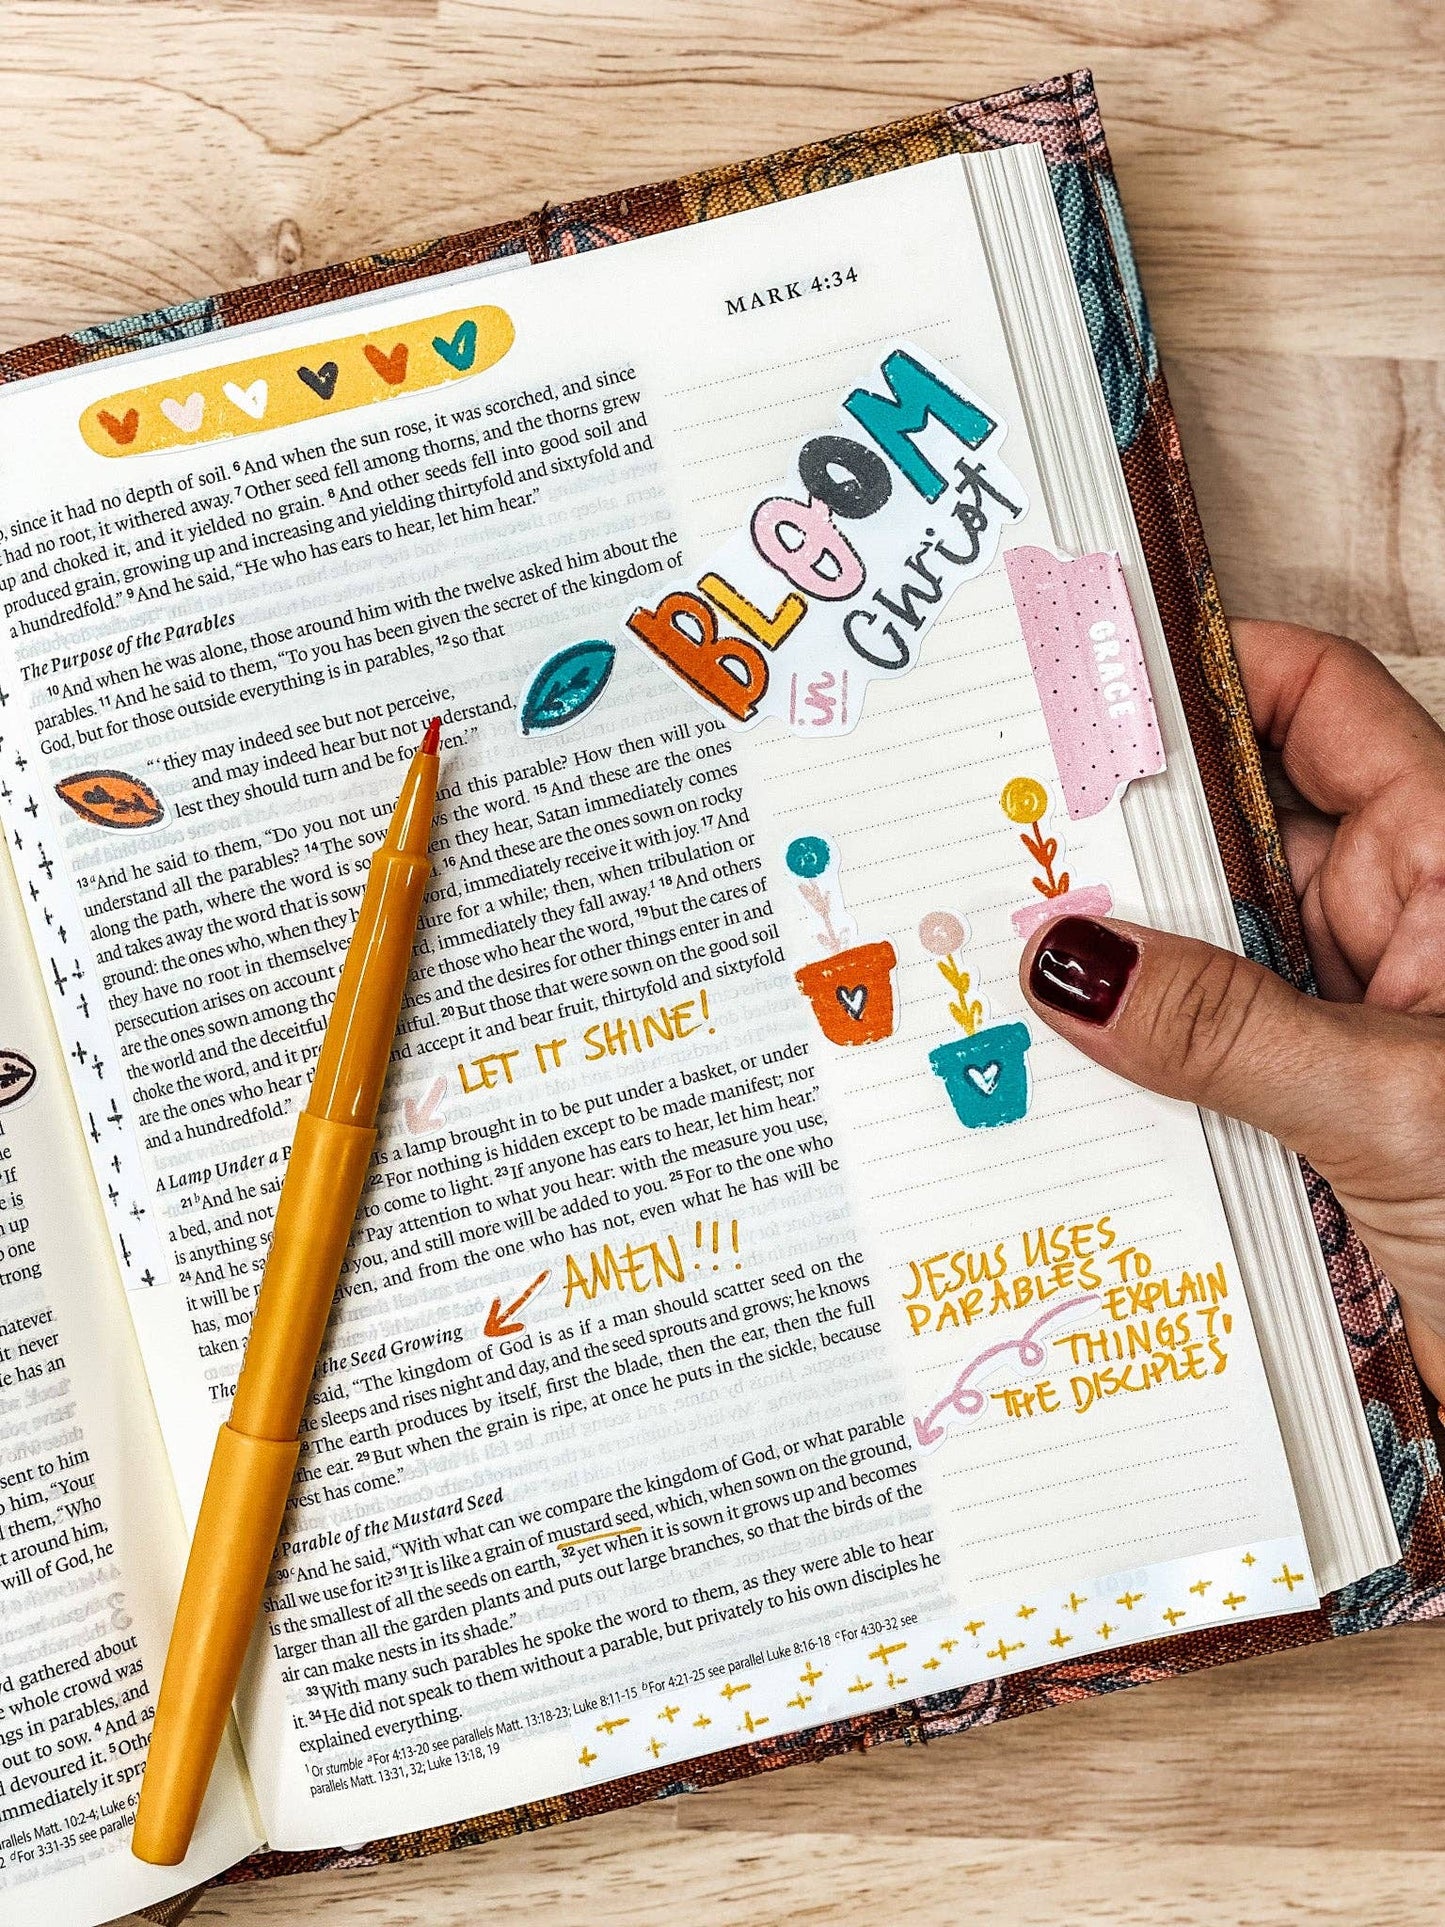 MARK 4:34
, since it had no depth of soil. 6 And when the sun rose, it was scorched, and since
had no root, it withered away. 7 Other seed fell among thorns, and the thorns grew
up and choked it, and it yielded no grain. 8 And other seeds fell into good soil and
produced grain, growing up and increasing and yielding thirtyfold and sixtyfold and
a hundredfold.” 9 And he said, “He who has ears to hear, let him hear.”
The Purpose of the Parables
10 And when he was alone, those around him with the twelve asked him about the
parables. 11 And he said to them, “To you has been given the secret of the kingdom of
God, but for those outside everything is in parables, 12 so that
“‘they may indeed see but not perceive,
and may indeed hear but not understand,
lest they should turn and be for ven.’”
13 a And he said to them, “Do you not un and this parable? How then will you
understand all the parables? 14 The sow ws the word. 15 And these are the ones
along the path, where the word is so en they hear, Satan immediately comes
and takes away the word that is sow . 16 And these are the ones sown on rocky
ground: the ones who, when they h word, immediately receive it with joy. 17 And
they have no root in themselves dure for a while; then, when tribulation or
persecution arises on account rd, immediately they fall away. 1 18 And others
are the ones sown among tho are those who hear the word, 19 but the cares of
the world and the deceitful hes and the desires for other things enter in and
choke the word, and it pr itful. 20 But those that were sown on the good soil
are the ones who hear th nd accept it and bear fruit, thirtyfold and sixtyfold
and a hundredfold.”
LET IT SHINE!
A Lamp Under a B
21 b And he sai Is a lamp brought in to be put under a basket, or under
a bed, and not 22 For nothing is hidden except to be made manifest; nor
is anything se to come to light. 23 If anyone has ears to hear, let him hear.”
24 And he sa “Pay attention to what you hear: with the measure you use,
it will be you, and still more will be added to you. 25 For to the one who
has, mor given, and from the one who has not, even what he has will be
taken a
AMEN!!!
The the Seed Growing
said, “The kingdom of God is as if a man should scatter seed on the
He sleeps and rises night and day, and the seed sprouts and grows; he knows
The earth produces by itself, first the blade, then the ear, then the full
the ear. 29 But when the grain is ripe, at once he puts in the sickle, because
vest has come.”
Parable of the Mustard Seed
30 c And he said, “With what can we compare the kingdom of God, or what parable
shall we use for it? 31 It is like a grain of mustard seed, which, when sown on the ground,
is the smallest of all the seeds on earth, 32 yet when it is sown it grows up and becomes
larger than all the garden plants and puts out large branches, so that the birds of the
air can make nests in its shade.”
33 With many such parables he spoke the word to them, as they were able to hear
it. 34 He did not speak to them without a parable, but privately to his own disciples he
explained everything.
1 Or stumble a For 4:13-20 see parallels Matt. 13:18-23; Luke 8:11-15 b For 4:21-25 see parallel Luke 8:16-18 c For 4:30-32 see
parallels Matt. 13:31, 32; Luke 13:18, 19
BLOOM
in Christ
GRACE
JESUS USES
PARABLES TO
EXPLAIN
THINGS TO
THE DISCIPLES
If
e is
n up
o one
trong
hatever
it never
he has an
sent to him
o him, “Your
them, “Who
t around him,
will of God, he
d gathered about
whole crowd was
ngs in parables, and
out to sow. 4 And as
d devoured it. 5 Othe
immediately it spra
rallels Matt. 10:2-4; Luke 6:1
d For 3:31-35 see parallel